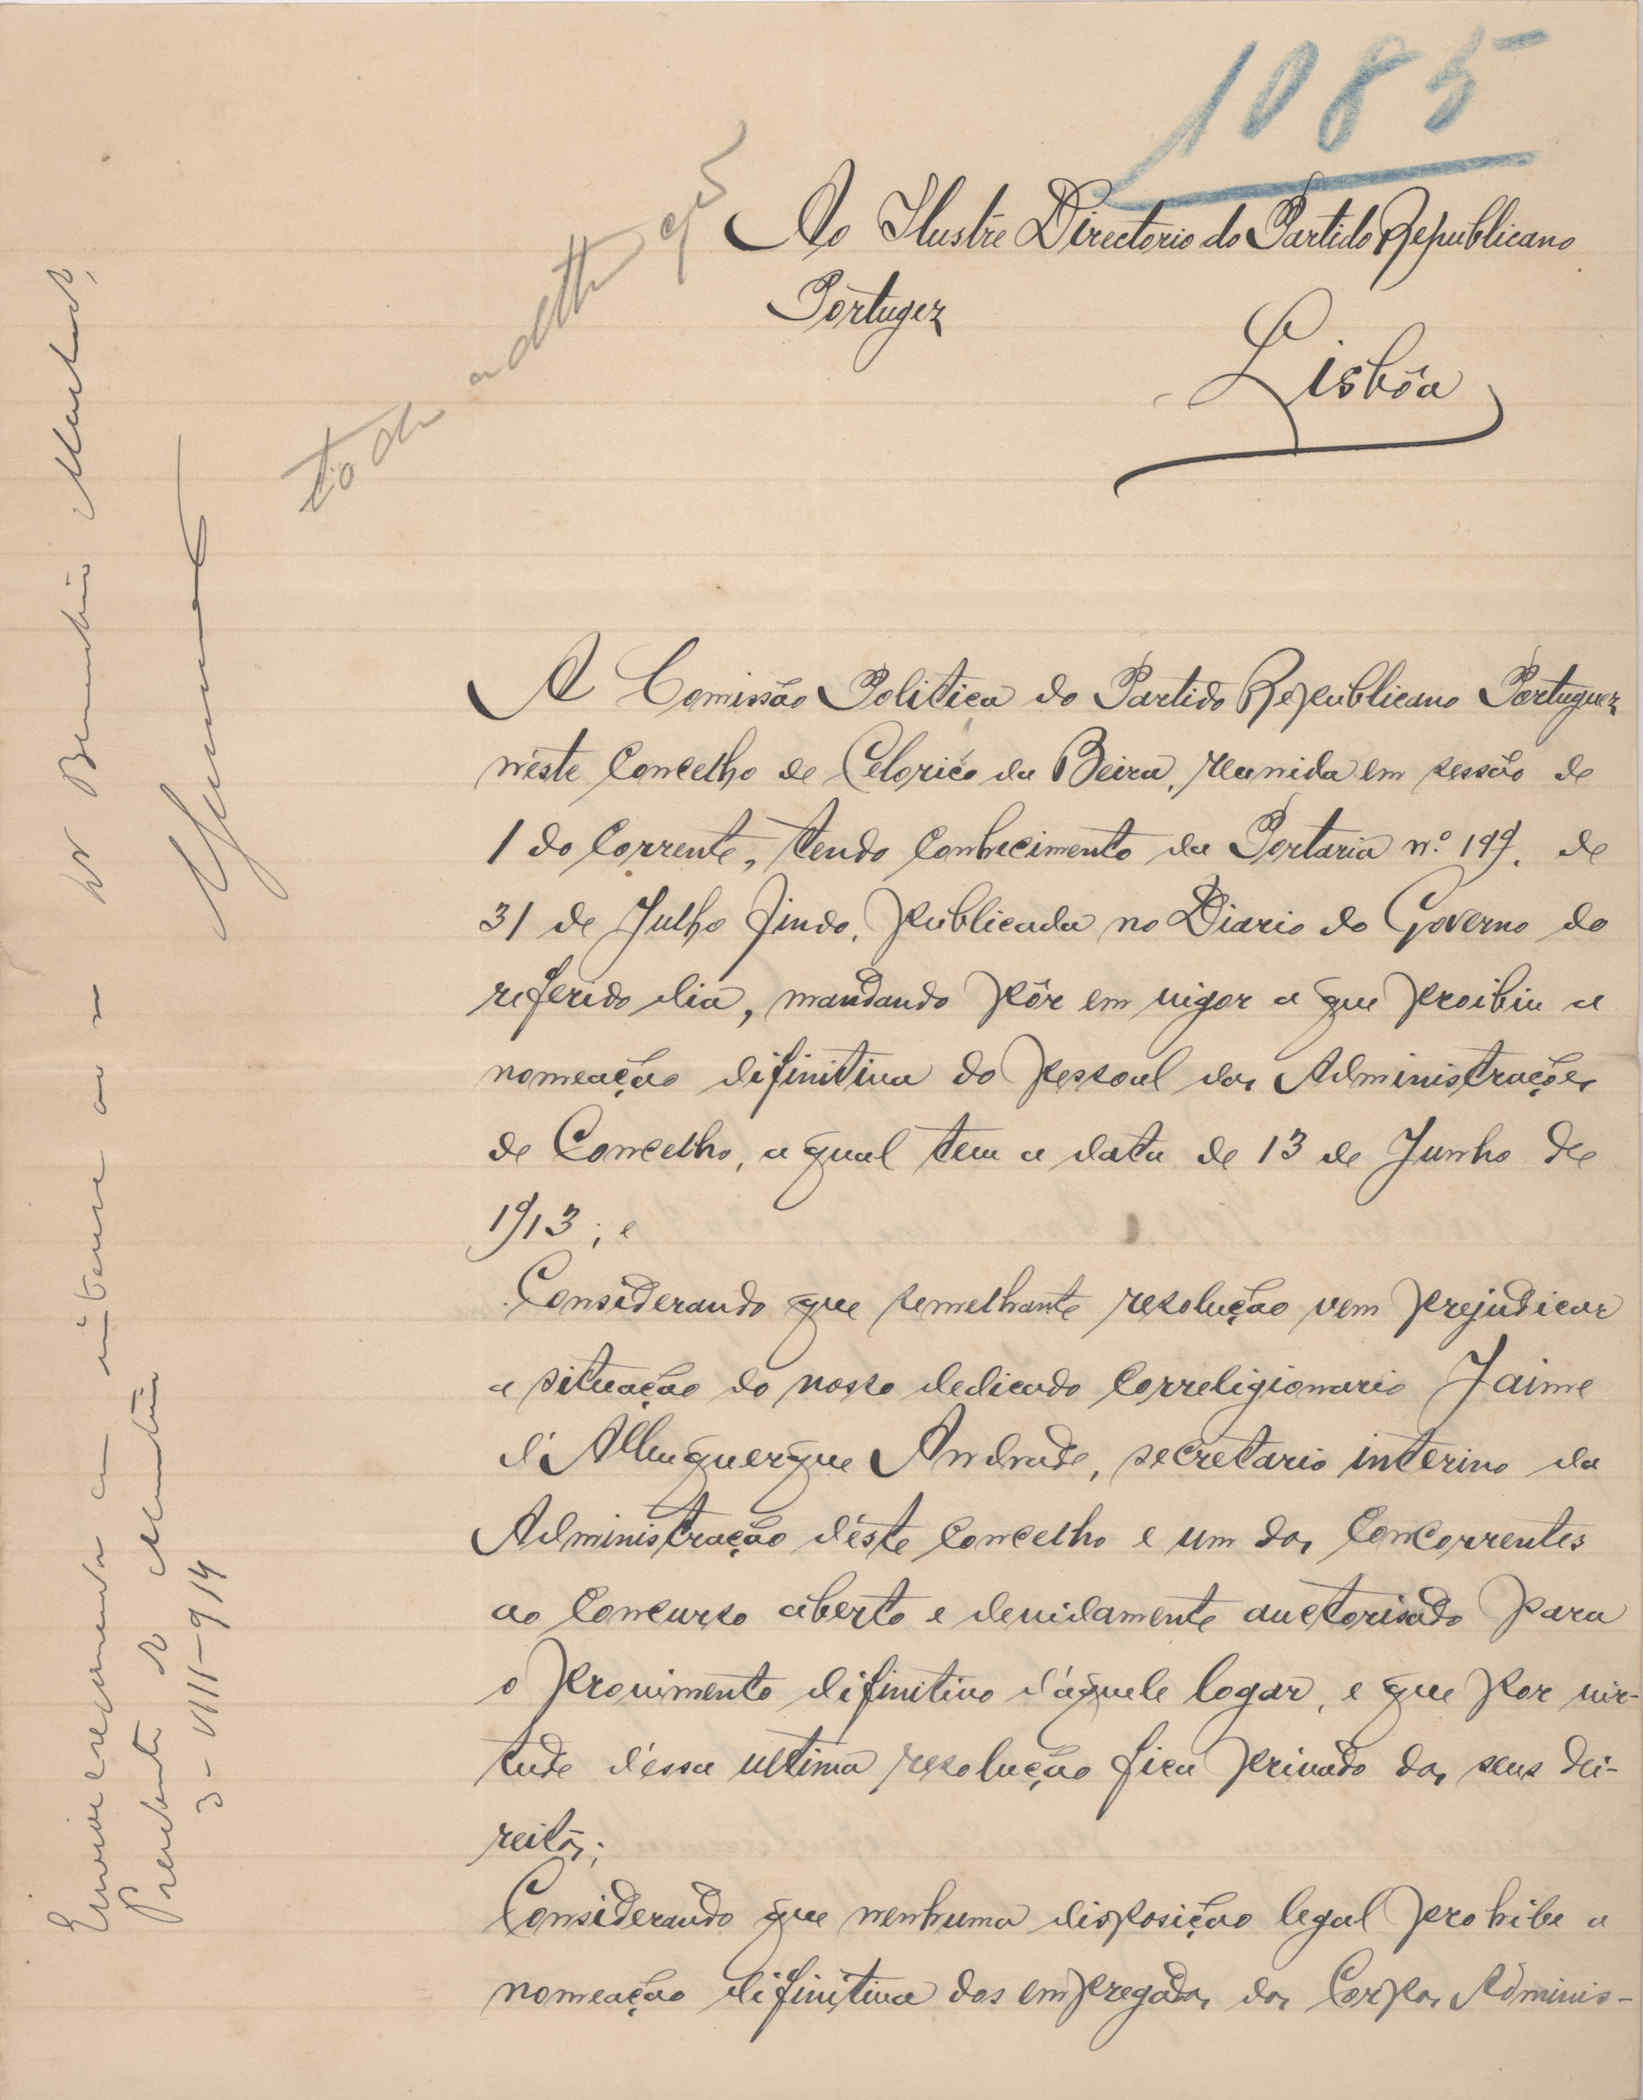 1085
Ao Ilustre Directorio do Partido Republicano
Portugez
Lisbôa
A Comissão Politica do Partido Republicano Portuguez
n'éste Concelho de Celorico da Beira, reunida em sessão de
1 do corrente, tendo conhecimento da Portaria n.º 199. de
31 de Julho findo, publicada no Diario do Governo do
referido dia, mandando pôr em vigor a que proibiu a
nomeação difinitiva do pessoal das Administrações
de Concelho, a qual tem a data de 13 de Junho de
1913; e
Considerando que semelhante resolução vem prejudicar
a situação do nosso dedicado correligionario Jaime
d'Albuquerque Andrade, secretario interino da
Administração d'éste concelho e um dos concorrentes
ao concurso aberto e devidamente auctorisado para
o provimento difinitivo d'aquele logar, e que por vir-
tude d'éssa ultima resolução fica privado dos seus di-
reitos;
Considerando que nenhuma disposição legal prohibe a
nomeação difinitiva dos empregados dos Corpos Adminis-
Enviar com interesse ao Bernardino Machado,
Presidente do Ministerio
3-VIII-914